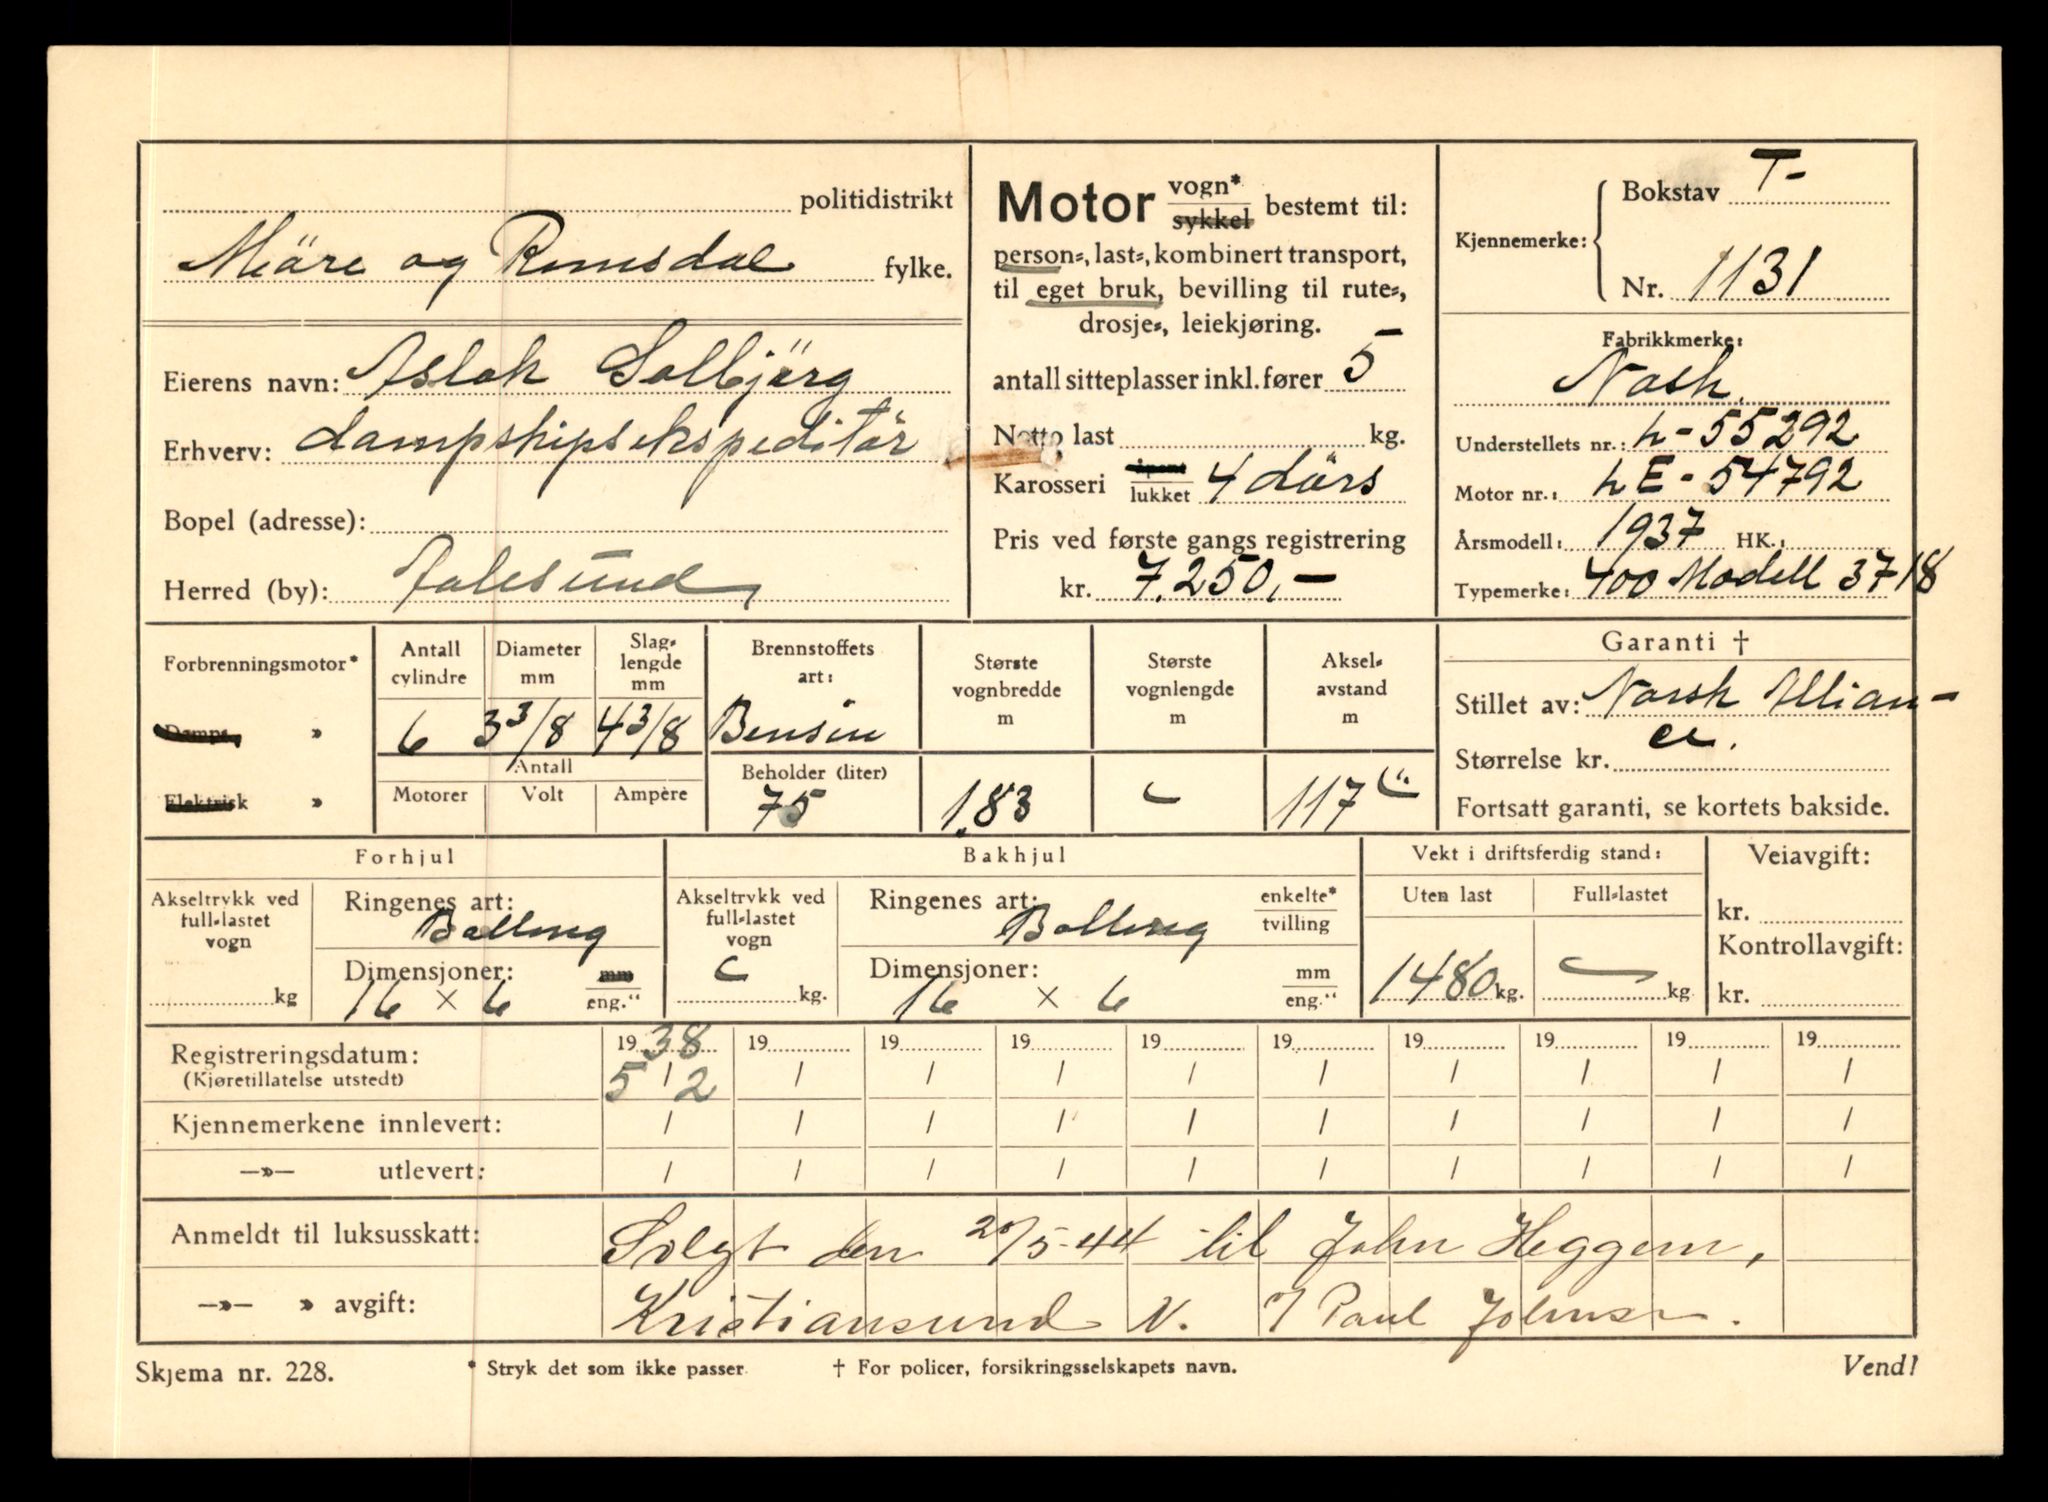 politidistrikt
Möre og Romsdal fylke.
Eierens navn: Aslak Solbjörg
Erhverv: dampskipsekspeditör
Bopel (adresse):
Herred (by): Aalesund
Motor vogn* sykkel bestemt til:
person-, last-, kombinert transport,
til eget bruk, bevilling til rute-,
drosje-, leiekjøring.
antall sitteplasser inkl. fører 5
Netto last kg.
Karosseri lukket 4 dörs
Pris ved første gangs registrering
kr. 7.250,-
Kjennemerke: Bokstav T-
Nr. 1131
Fabrikkmerke:
Nash.
Understellets nr.: L-55292
Motor nr.: LE-54792
Årsmodell: 1937 HK.:
Typemerke: 400 Modell 3718
Forbrenningsmotor*
Damps »
Elektrisk »
Antall cylindre
6
Diameter mm
3 3/8
Slag-lengde mm
4 3/8
Antall
Motorer Volt Ampère
Brennstoffets art:
Bensin
Beholder (liter)
75
Største vognbredde m
1,83
Største vognlengde m
Aksel-avstand m
117"
Garanti †
Stillet av: Norsk Allian-
ce.
Størrelse kr.
Fortsatt garanti, se kortets bakside.
Forhjul
Akseltrykk ved full-lastet vogn
kg
Ringenes art:
Ballong
Dimensjoner: mm eng."
16 × 6
Bakhjul
Akseltrykk ved full-lastet vogn
kg.
Ringenes art: enkelte* tvilling
Ballong
Dimensjoner: mm eng."
16 × 6
Vekt i driftsferdig stand:
Uten last Full-lastet
1480 kg. kg.
Veiavgift:
kr.
Kontrollavgift:
kr.
Registreringsdatum: 1938 19 19 19 19 19 19 19 19 19
(Kjøretillatelse utstedt) 5 / 2 / / / / / / / / /
Kjennemerkene innlevert: / / / / / / / / / /
—»— utlevert: / / / / / / / / / /
Anmeldt til luksusskatt: Solgt den 20/5-44 til John Heggem,
—»— » avgift: Kristiansund N. Paul Johnsen.
Skjema nr. 228. * Stryk det som ikke passer † For policer, forsikringsselskapets navn. Vend!